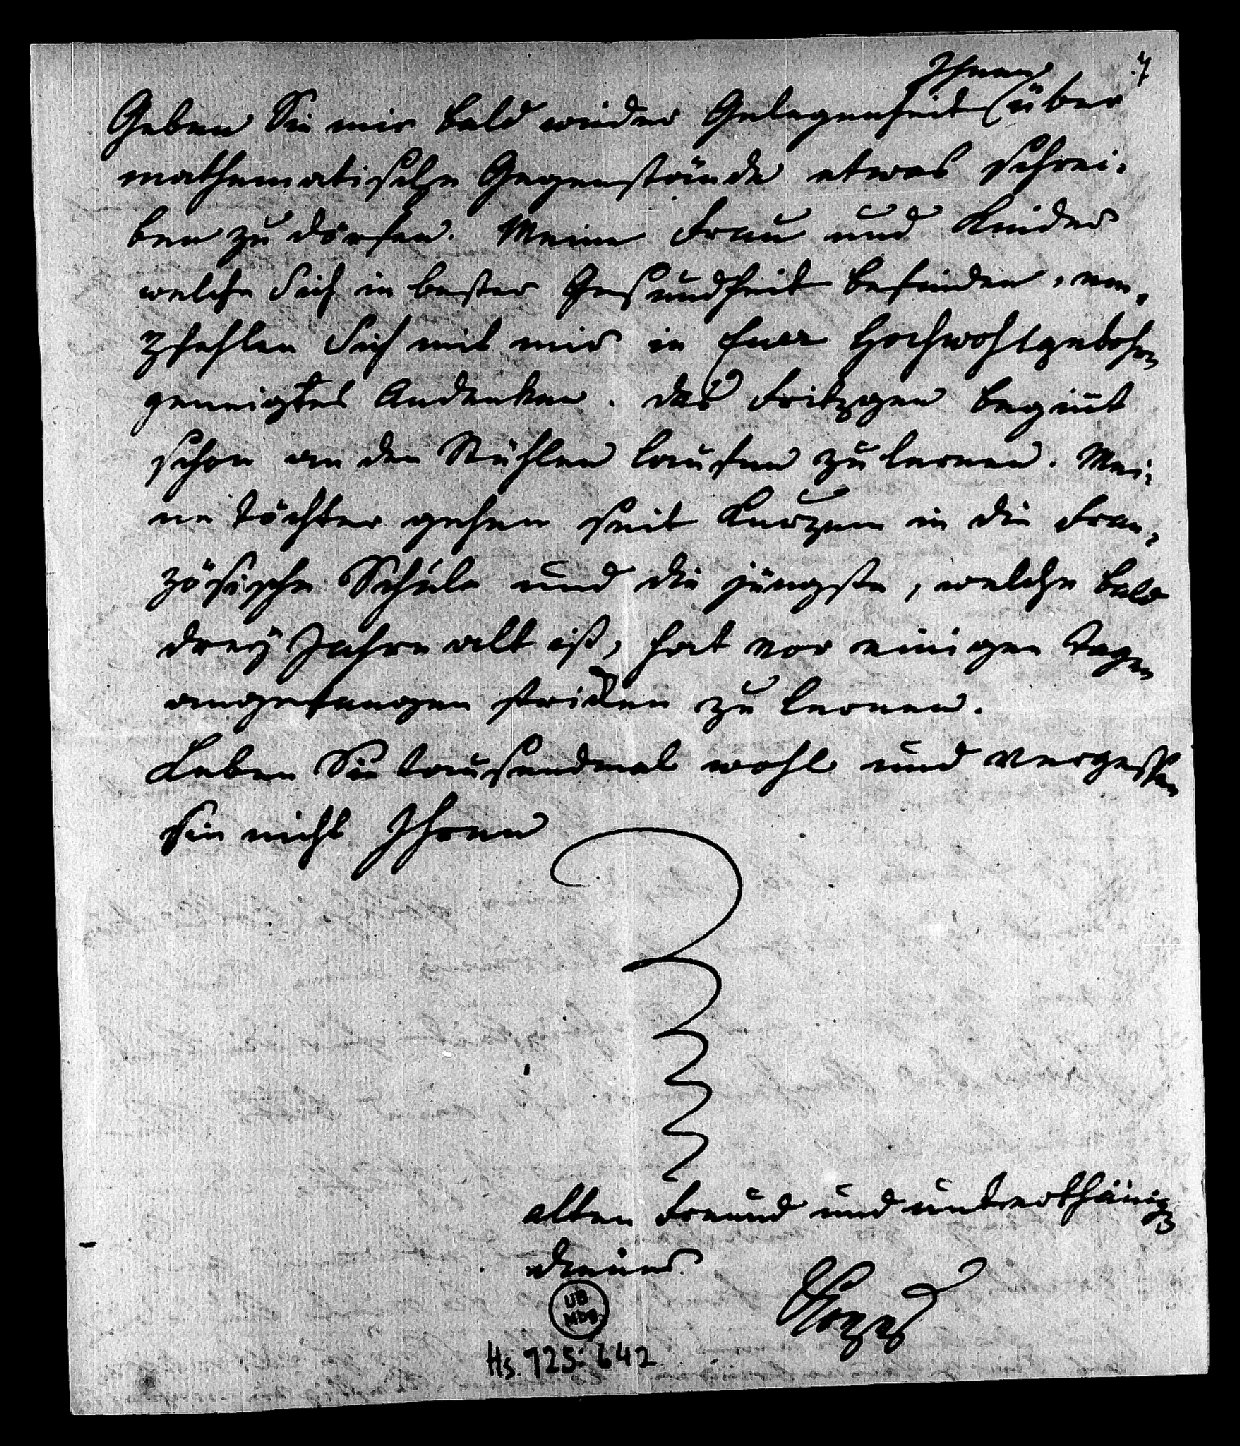 7
Ihnen
Geben Sie mir bald wieder Gelegenheit über
mathematische Gegenstände etwas schrei-
ben zu dörfen. Meine Frau und Kinder
welche sich in bester Gesundheit befinden, em-
pfehlen sich mit mir in Euer Hochwohlgebohrn
geneigtes Andenken. das Fritzgen begint
schon an den Stühlen laufen zu lernen. Mei-
ne Töchter gehen seit Kurzem in die Fran-
zösische Schule und die jüngste, welche bald
drey Jahre alt ist, hat vor einigen Tagen
angefangen stricken zu lernen.
Leben Sie tausendmal wohl und vergessen
sie nicht Ihren
alten Freund und unterthänig
diener
UB
Hs. 925: 642